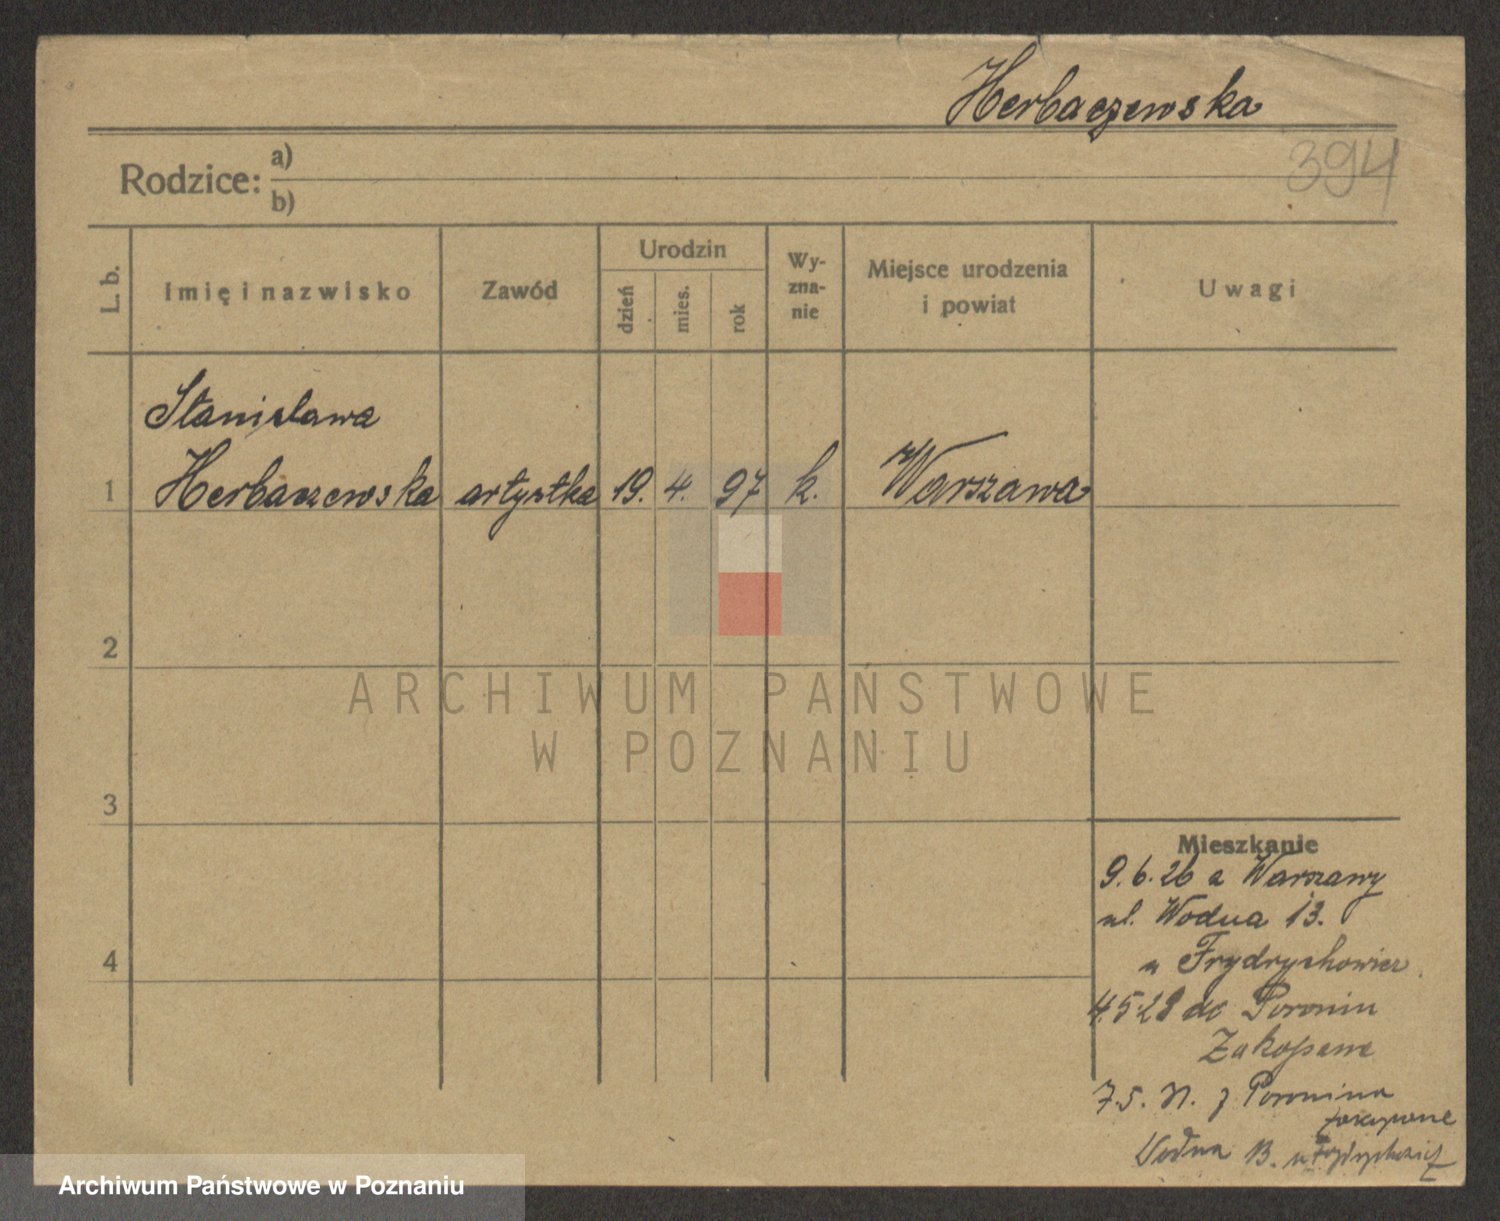 Herbaczewska
394
Rodzice: a)
b)
L. b.
Imię i nazwisko
Zawód
Urodzin
dzień
mies.
rok
Wy-
zna-
nie
Miejsce urodzenia
i powiat
Uwagi
Stanisława
1 Herbaczewska artystka 19. 4. 97 k. Warszawa
2
3
4
ARCHIWUM PAŃSTWOWE
W POZNANIU
Mieszkanie
9.6.26 z Warszawy
ul. Wodna 13.
u Frydrychowicz
4.5.28 do Poronin
Zakopane
7.5. z Poronina
Zakopane
Wodna 13. u Frydrychowicz
Archiwum Państwowe w Poznaniu